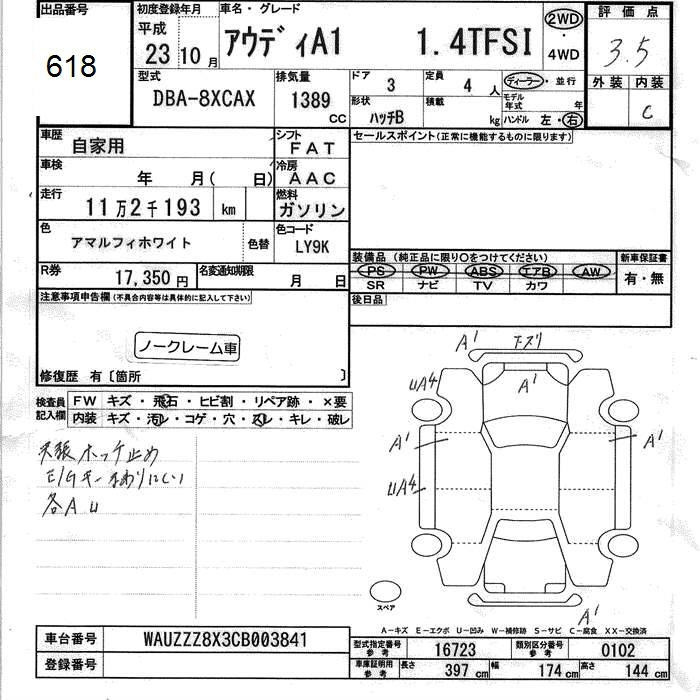 出品番号
618
初度登録年月
平成
23 10 月
車名・グレード
アウディA1 1.4TFSI
2WD
・
4WD
評価点
3.5
外装 内装
C
型式
DBA-8XCAX
排気量
1389
CC
ドア
3
定員
4 人
ディーラー・並行
形状
ハッチB
積載
kg
モデル年式
年
ハンドル 左・右
車歴
自家用
シフト
FAT
車検
年 月( 日)
冷房
AAC
走行
11万2千193 km
燃料
ガソリン
色
アマルフィホワイト
色替
色コード
LY9K
R券
17,350円
名変通知期限
月 日
セールスポイント(正常に機能するものに限ります)
装備品 (純正品に限り○をつけてください)
PS PW ABS エアB AW
SR ナビ TV カワ
新車保証書
有・無
後日品
注意事項申告欄(不具合内容等は具体的に記入して下さい)
ノークレーム車
修復歴 有〔箇所 〕
検査員記入欄
FW キズ・飛石・ヒビ割・リペア跡・×要
内装 キズ・汚レ・コゲ・穴・スレ・キレ・破レ
天張ホッチ止め
E/Gキーまわりにくい
各A U
A1 下スリ
A1
UA4
A1
A1
UA4
A1
スペア
A-キズ E-エクボ U-凹み W-補修跡 S-サビ C-腐食 XX-交換済
車台番号
WAUZZZ8X3CB003841
登録番号
型式指定番号
参考
16723
類別区分番号
参考
0102
車庫証明用
参考
長さ 397 cm 幅 174 cm 高さ 144 cm